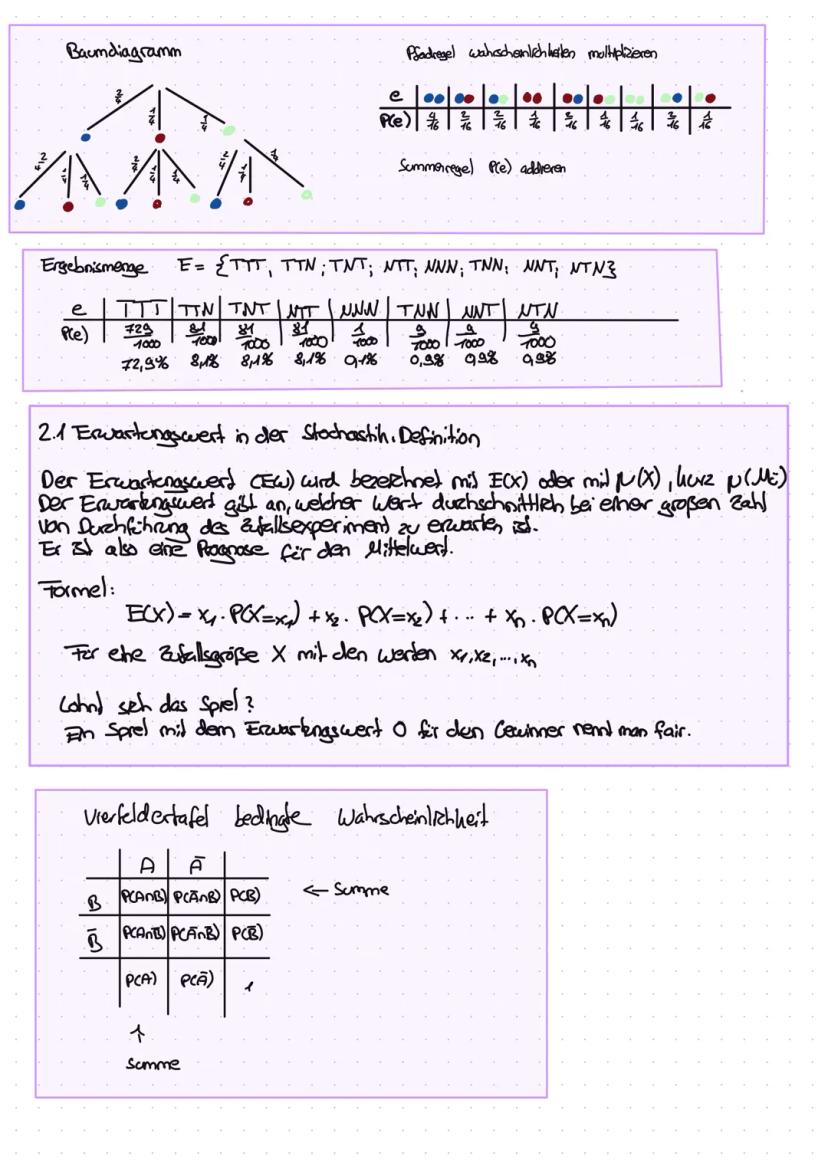 Baumdiagramm
Pfadregel wahrscheinlichkeiten multiplizieren
2/4 1/4 1/4
2/4 1/4 1/4 2/4 1/4 1/4 2/4 1/4 1/4
e
P(e) 4/16 2/16 2/16 1/16 2/16 1/16 1/16 2/16 1/16
Summenregel P(e) addieren
Ergebnismenge E = {TTT, TTN; TNT; NTT; NNN; TNN; NNT; NTN}
e TTT TTN TNT NTT NNN TNN NNT NTN
P(e) 729/1000 81/1000 81/1000 81/1000 1/1000 9/1000 9/1000 9/1000
72,9% 8,1% 8,1% 8,1% 0,1% 0,9% 0,9% 0,9%
2.1 Erwartungswert in der Stochastik. Definition
Der Erwartungswert (EW) wird bezeichnet mit E(X) oder mit μ(X), kurz μ (Mü)
Der Erwartungswert gibt an, welcher Wert durchschnittlich bei einer großen Zahl
von Durchführung des Zufallsexperiment zu erwarten ist.
Er ist also eine Prognose für den Mittelwert.
Formel:
E(X) = x₁ · P(X=x₁) + x₂ · P(X=x₂) + ... + xₙ · P(X=xₙ)
Für eine Zufallsgröße X mit den werten x₁, x₂, ..., xₙ
Lohnt sich das Spiel?
Ein Spiel mit dem Erwartungswert 0 für den Gewinner nennt man fair.
Vierfeldertafel bedingte Wahrscheinlichkeit
A Ā
B P(A∩B) P(Ā∩B) P(B) ← Summe
B̄ P(A∩B̄) P(Ā∩B̄) P(B̄)
P(A) P(Ā) 1
↑
Summe